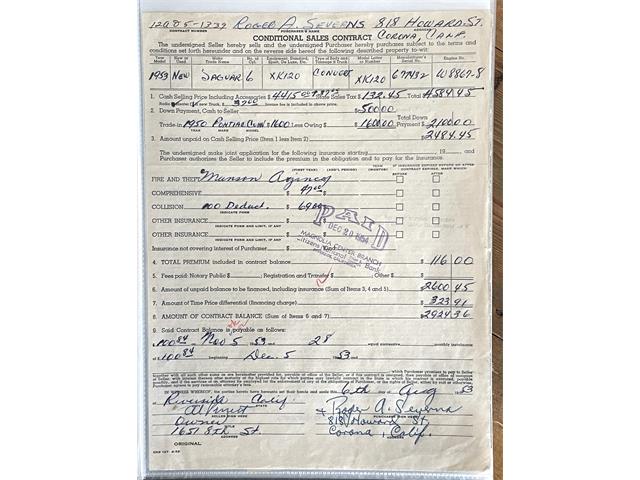 12005-1339 Roger A. Severns 818 Howard St.
CONTRACT NUMBER PURCHASER'S NAME ADDRESS
CONDITIONAL SALES CONTRACT Corona, Calif.
The undersigned Seller hereby sells and the undersigned Purchaser hereby purchases subject to the terms and
conditions set forth hereunder and on the reverse side hereof the following described property:
Year Model New or Used Make Trade Name No. of Cyl. Equipment: Standard, Sport, De Luxe, Etc. Type of Body and Tonnage if Truck Model Letter or Number Manufacturer's Serial No. Engine No.
1953 New Jaguar 6 XK120 Convert XK120 W8867-8
1. Cash Selling Price Including Accessories $ 4415 State Sales Tax $ 132.45 Total $ 4584.45
license fee is included in above price.
2. Down Payment, Cash to Seller $ 500.00
Trade-in 1950 Pontiac $1600 Less Owing $ $ 1600.00 Total Down Payment $ 2100.00
YEAR MAKE MODEL
3. Amount unpaid on Cash Selling Price (Item 1 less Item 2) 2484.45
The undersigned make joint application for the following insurance starting 19 and
Purchaser authorizes the Seller to include the premium in the contract obligation and to pay for the insurance.
FIRE AND THEFT Munson Agency
COMPREHENSIVE $ 47.00
COLLISION 100 Deduct. 69.00
INDICATE FORM
OTHER INSURANCE
INDICATE FORM AND LIMIT, IF ANY
OTHER INSURANCE
INDICATE FORM AND LIMIT, IF ANY
PAID
DEC 20 1954
MAGNOLIA CENTER BRANCH
Citizens National Bank
Insurance not covering interest of Purchaser $
4. TOTAL PREMIUM included in contract balance $ 116.00
5. Fees paid: Notary Public $ ; Registration and Transfer $ Other $ $
6. Amount of unpaid balance to be financed, including insurance (Sum of Items 3, 4 and 5) $ 2600.45
7. Amount of Time Price differential (financing charge) $ 323.91
8. AMOUNT OF CONTRACT BALANCE (Sum of Items 6 and 7) $ 2924.36
9. Said Contract Balance is payable as follows:
$ 100.84 Nov 5 1953 and 28 equal successive monthly instalments
of $ 100.84 beginning Dec. 5 1953 and
6th Aug 1953
Riverside Calif
Owner Roger A. Severns
1651 8th St. 818 Howard St
Corona, Calif.
ORIGINAL